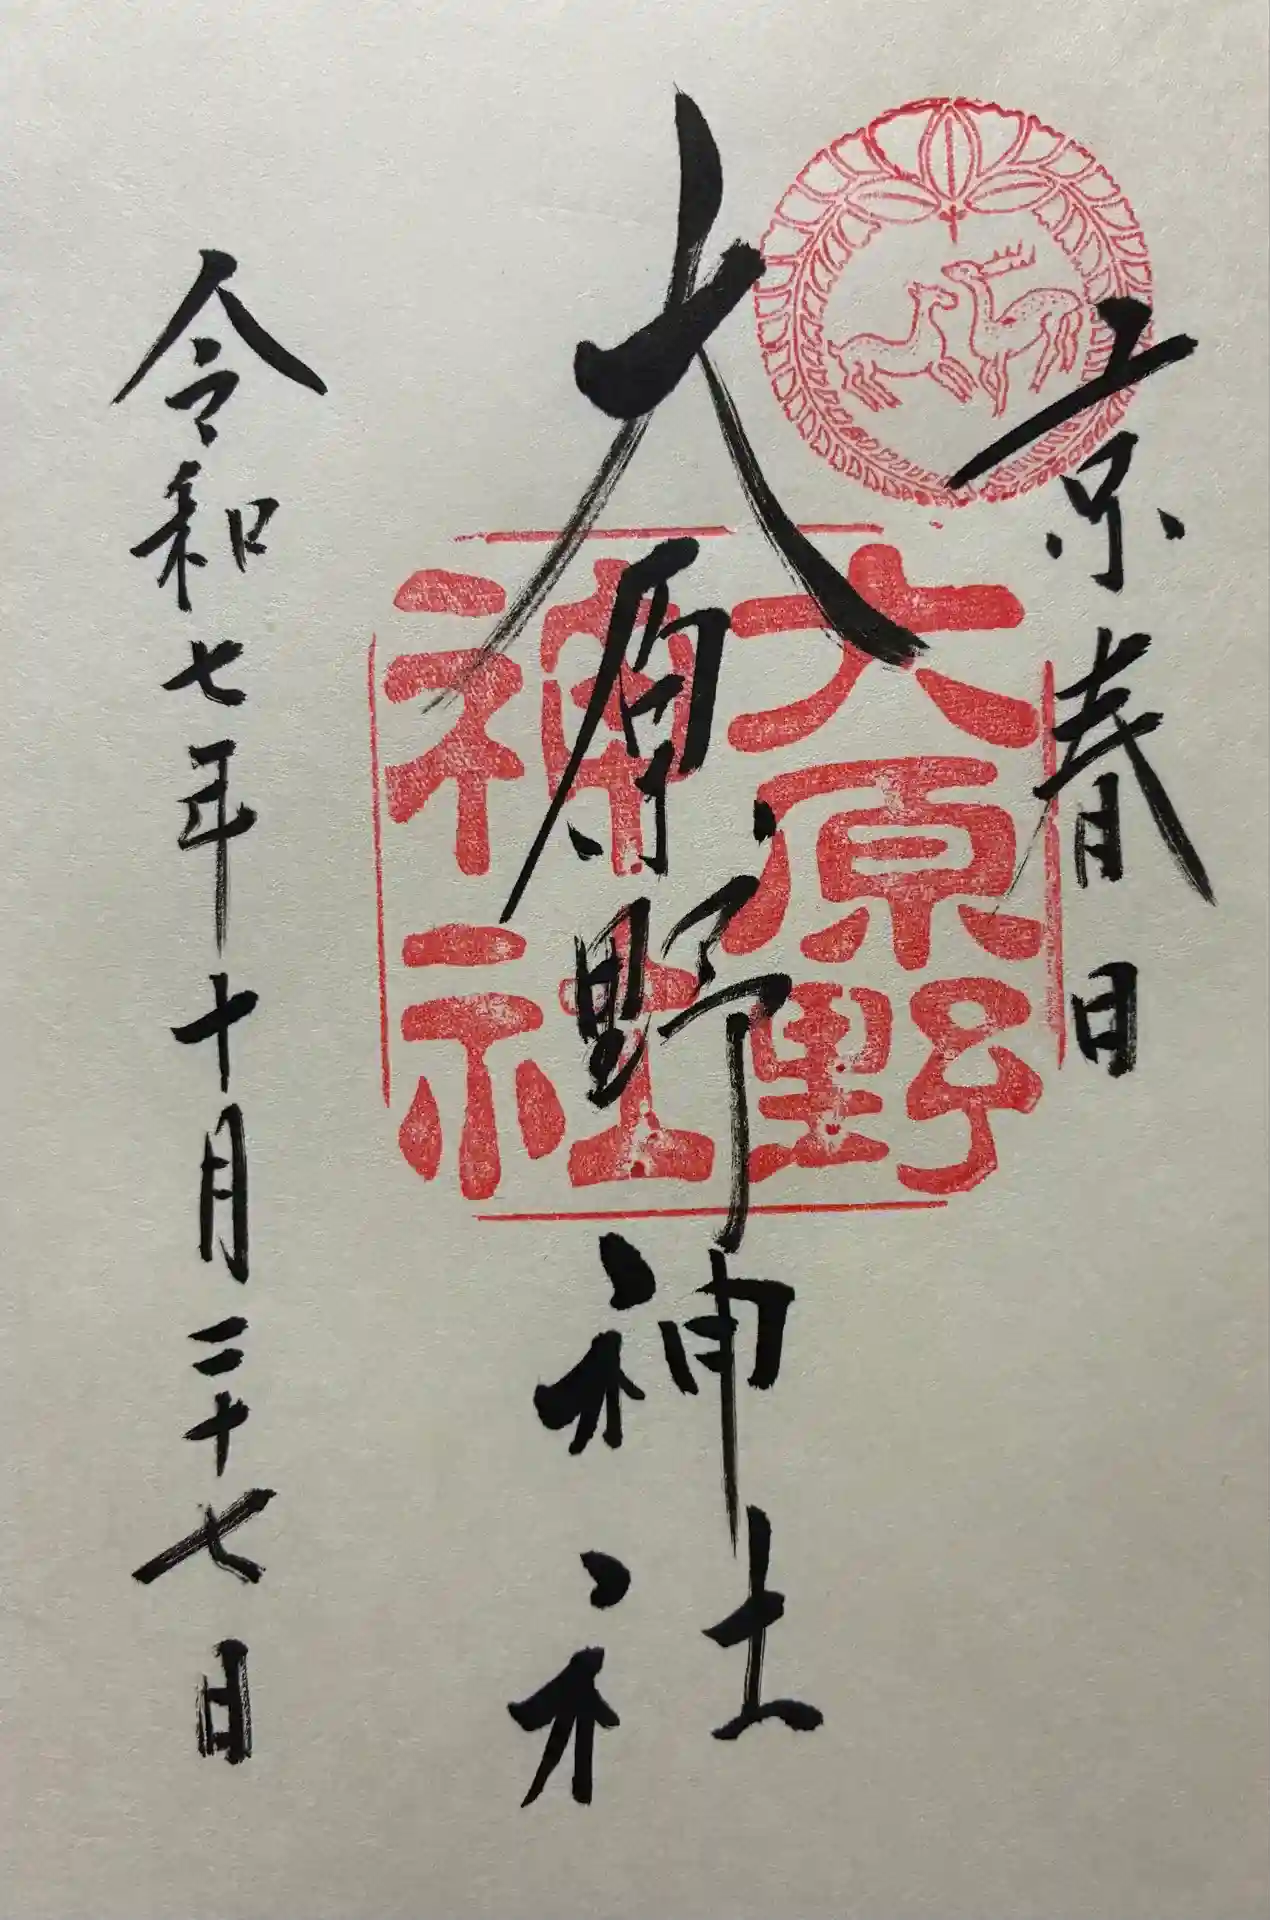 京春日
大原野神社
大原野
神社
令和七年十月二十七日